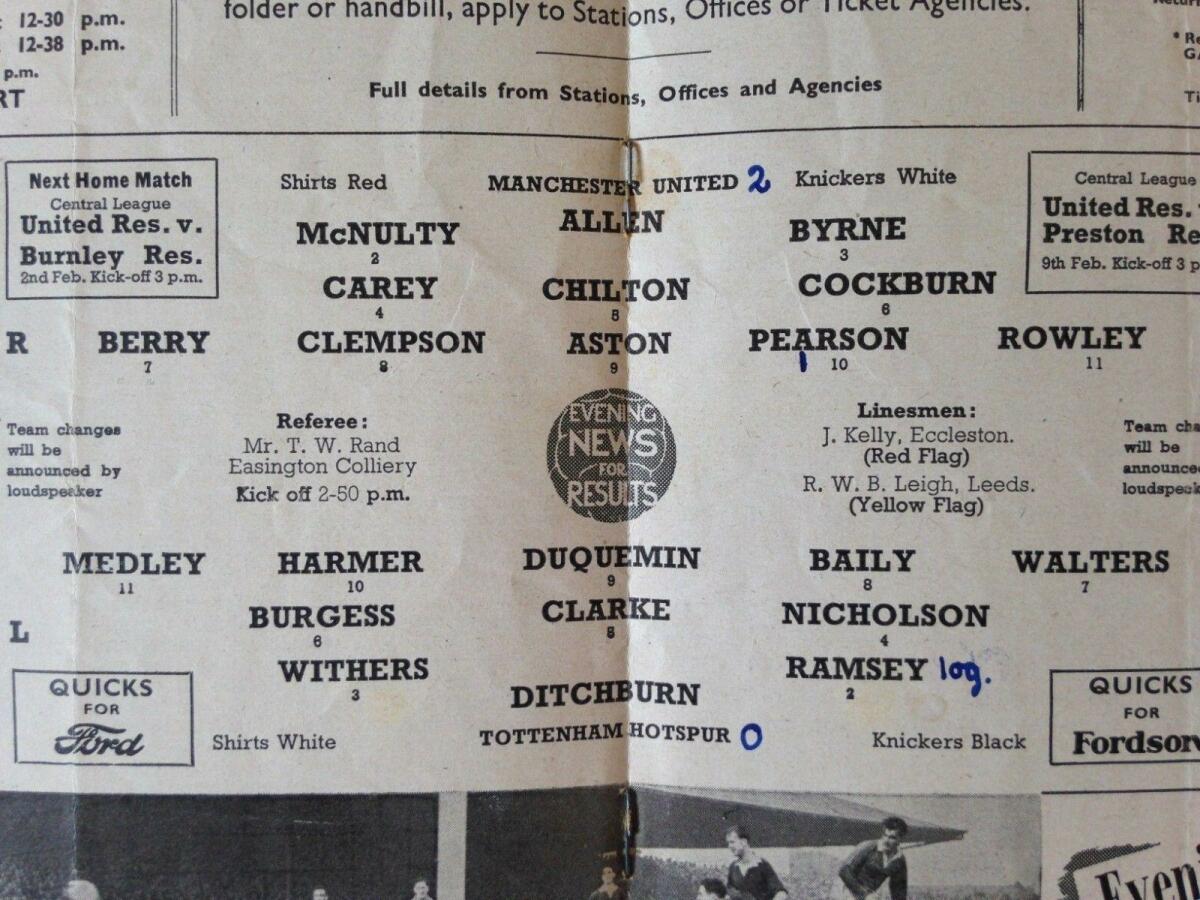 : 12-30 p.m.
: 12-38 p.m.
p.m.
RT
folder or handbill, apply to Stations, Offices or Ticket Agencies.
Full details from Stations, Offices and Agencies
Next Home Match
Central League
United Res. v.
Burnley Res.
2nd Feb. Kick-off 3 p.m.
Shirts Red
MANCHESTER UNITED 2
Knickers White
Central League
United Res.
Preston Re
9th Feb. Kick-off 3 p
ALLEN
McNULTY
2
BYRNE
3
CAREY
4
CHILTON
5
COCKBURN
6
R
BERRY
7
CLEMPSON
8
ASTON
9
PEARSON
1 10
ROWLEY
11
Team changes
will be
announced by
loudspeaker
Referee:
Mr. T. W. Rand
Easington Colliery
Kick off 2-50 p.m.
EVENING
NEWS
FOR
RESULTS
Linesmen:
J. Kelly, Eccleston.
(Red Flag)
R. W. B. Leigh, Leeds.
(Yellow Flag)
Team cha
will be
announce
loudspeak
MEDLEY
11
HARMER
10
DUQUEMIN
9
BAILY
8
WALTERS
7
L
BURGESS
6
CLARKE
5
NICHOLSON
4
WITHERS
3
RAMSEY 1og.
2
DITCHBURN
QUICKS
FOR
Ford
Shirts White
TOTTENHAM HOTSPUR 0
Knickers Black
QUICKS
FOR
Fordson
Eveni